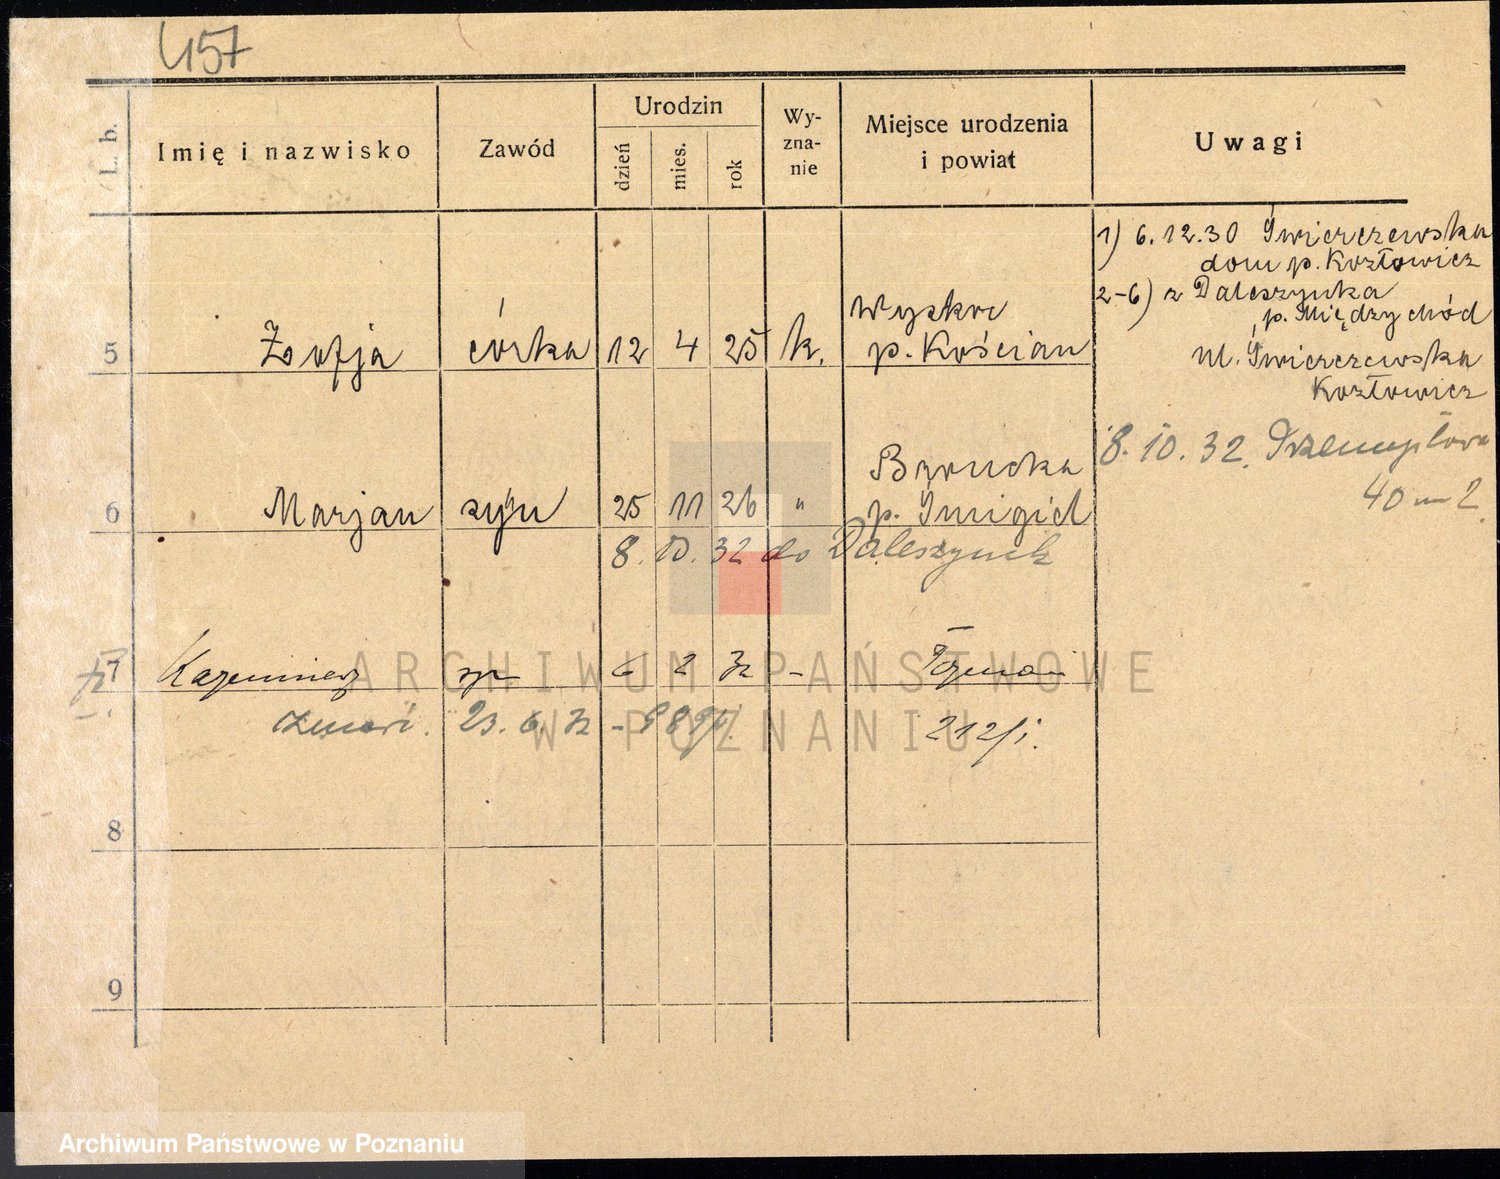 457
L. b.
Imię i nazwisko
Zawód
Urodzin
dzień mies. rok
Wy-
zna-
nie
Miejsce urodzenia
i powiat
Uwagi
1) 6.12.30 Świerczewska
dom p. Kozłowicz
2-6) z Daleszynka
p. Międzychód
ul. Świerczewska
Kozłowicz
8. 10. 32. Przemysłowa
40 m 2
Wyskoc
5 Zofja córka 12 4 25 k. p. Kościan
6 Marjan syn 25 11 26 " p. Śmigiel
8. 10. 32 do Daleszynek
7 Kazimierz syn 6 2 32 - Poznań
zmarł. 23. 6. 32
8
9
ARCHIWUM PAŃSTWOWE
W POZNANIU
Archiwum Państwowe w Poznaniu